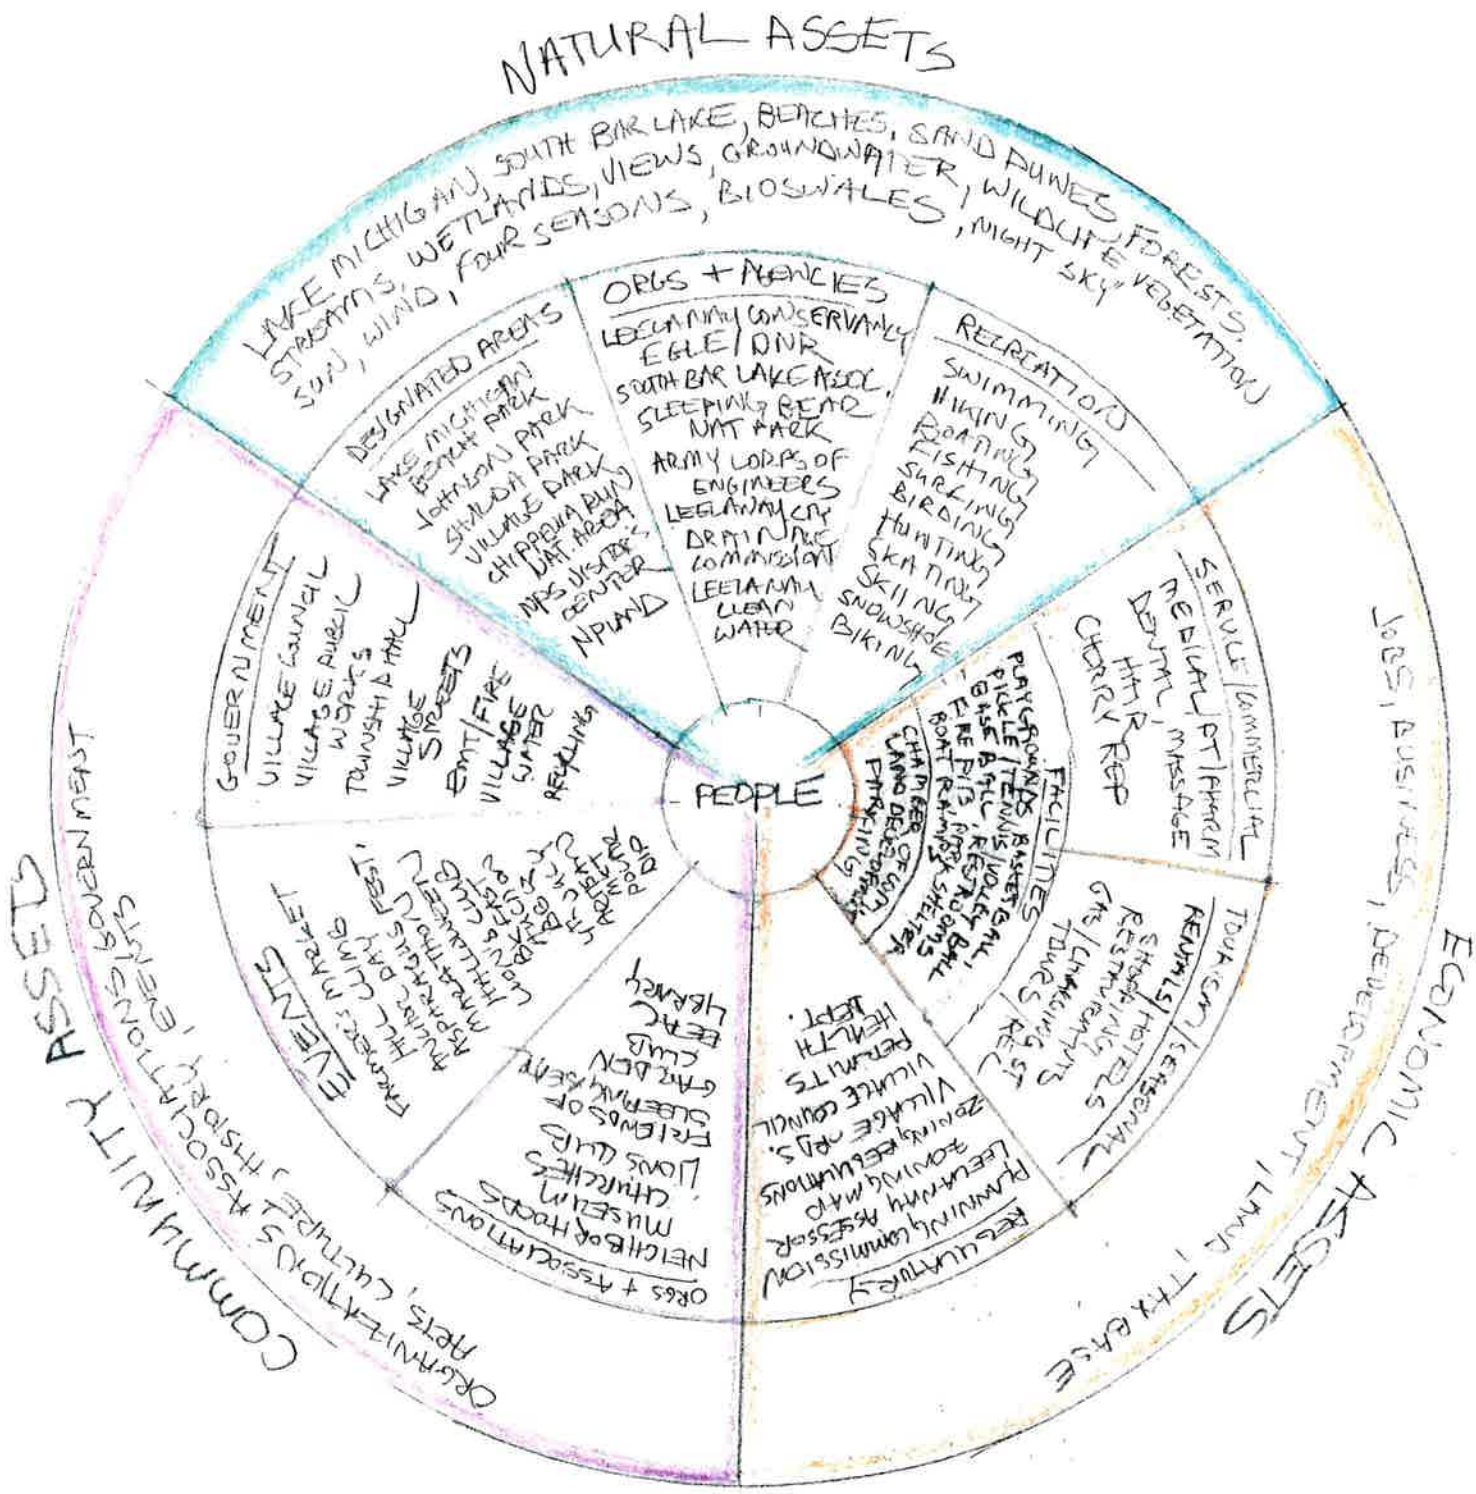 NATURAL ASSETS
LAKE MICHIGAN, SOUTH BAR LAKE, BEACHES, SAND DUNES, FORESTS,
STREAMS, WETLANDS, VIEWS, GROUNDWATER, WILDLIFE, VEGETATION
SUN, WIND, FOUR SEASONS, BIOSWALES, NIGHT SKY
DESIGNATED AREAS
LAKE MICHIGAN
BEACH PARK
JOHNSON PARK
SHALDA PARK
VILLAGE PARK
CHIPPEWA RUN
NAT. AREA
NPS VISITOR'S
CENTER
NPLAND
ORGS + AGENCIES
LEELANAU CONSERVANCY
EGLE/DNR
SOUTH BAR LAKE ASSOC.
SLEEPING BEAR
NAT PARK
ARMY CORPS OF
ENGINEERS
LEELANAU CTY
DRAINAGE
COMMISSION
LEELANAU
CLEAN
WATER
RECREATION
SWIMMING
HIKING
BOATING
FISHING
SURFING
BIRDING
HUNTING
SKATING
SKIING
SNOWSHOE
BIKING
ECONOMIC ASSETS
JOBS, BUSINESS, DEVELOPMENT, LAND, TAX BASE
SERVICE/COMMERCIAL
MEDICAL/PT/PHARM
DENTAL, MASSAGE
HAIR
CHERRY REP
FACILITIES
PLAYGROUNDS, BASKETBALL,
PICKLE/TENNIS/VOLLEY BALL
BASEBALL, RESTROOMS
FIRE PITS, PARK SHELTER
BOAT RAMPS
CHAMBER OF COM.
LAND
PARKING
TOURISM/SEASONAL
RENTALS/HOTELS
SHOPPING
RESTAURANTS
GAS/CHARGING ST
TOURS/REC
REGULATORY
PLANNING COMMISSION
LEELANAU ASSESSOR
ZONING MAP
ZONING REGULATIONS
VILLAGE ORDS.
VILLAGE COUNCIL
PERMITS
HEALTH
DEPT.
COMMUNITY ASSETS
ORGANIZATIONS, ASSOCIATIONS, GOVERNMENT
ARTS, CULTURE, HISTORY, EVENTS
ORGS + ASSOCIATIONS
NEIGHBORHOODS
MUSEUM
CHURCHES
LIONS CLUB
FRIENDS OF
SLEEPING BEAR
GARDEN
CLUB
EEAC
LIBRARY
EVENTS
FARMER'S MARKET
HILL CLIMB
ANCHOR DAY
ASPARAGUS FEST.
MARATHON
HALLOWEEN
LIONS CLUB
BKFAST
GOVERNMENT
VILLAGE COUNCIL
VILLAGE PUBLIC
WORKS
TOWNSHIP HALL
VILLAGE
STREETS
EMT/FIRE
VILLAGE
WATER
RECYCLING
PEOPLE